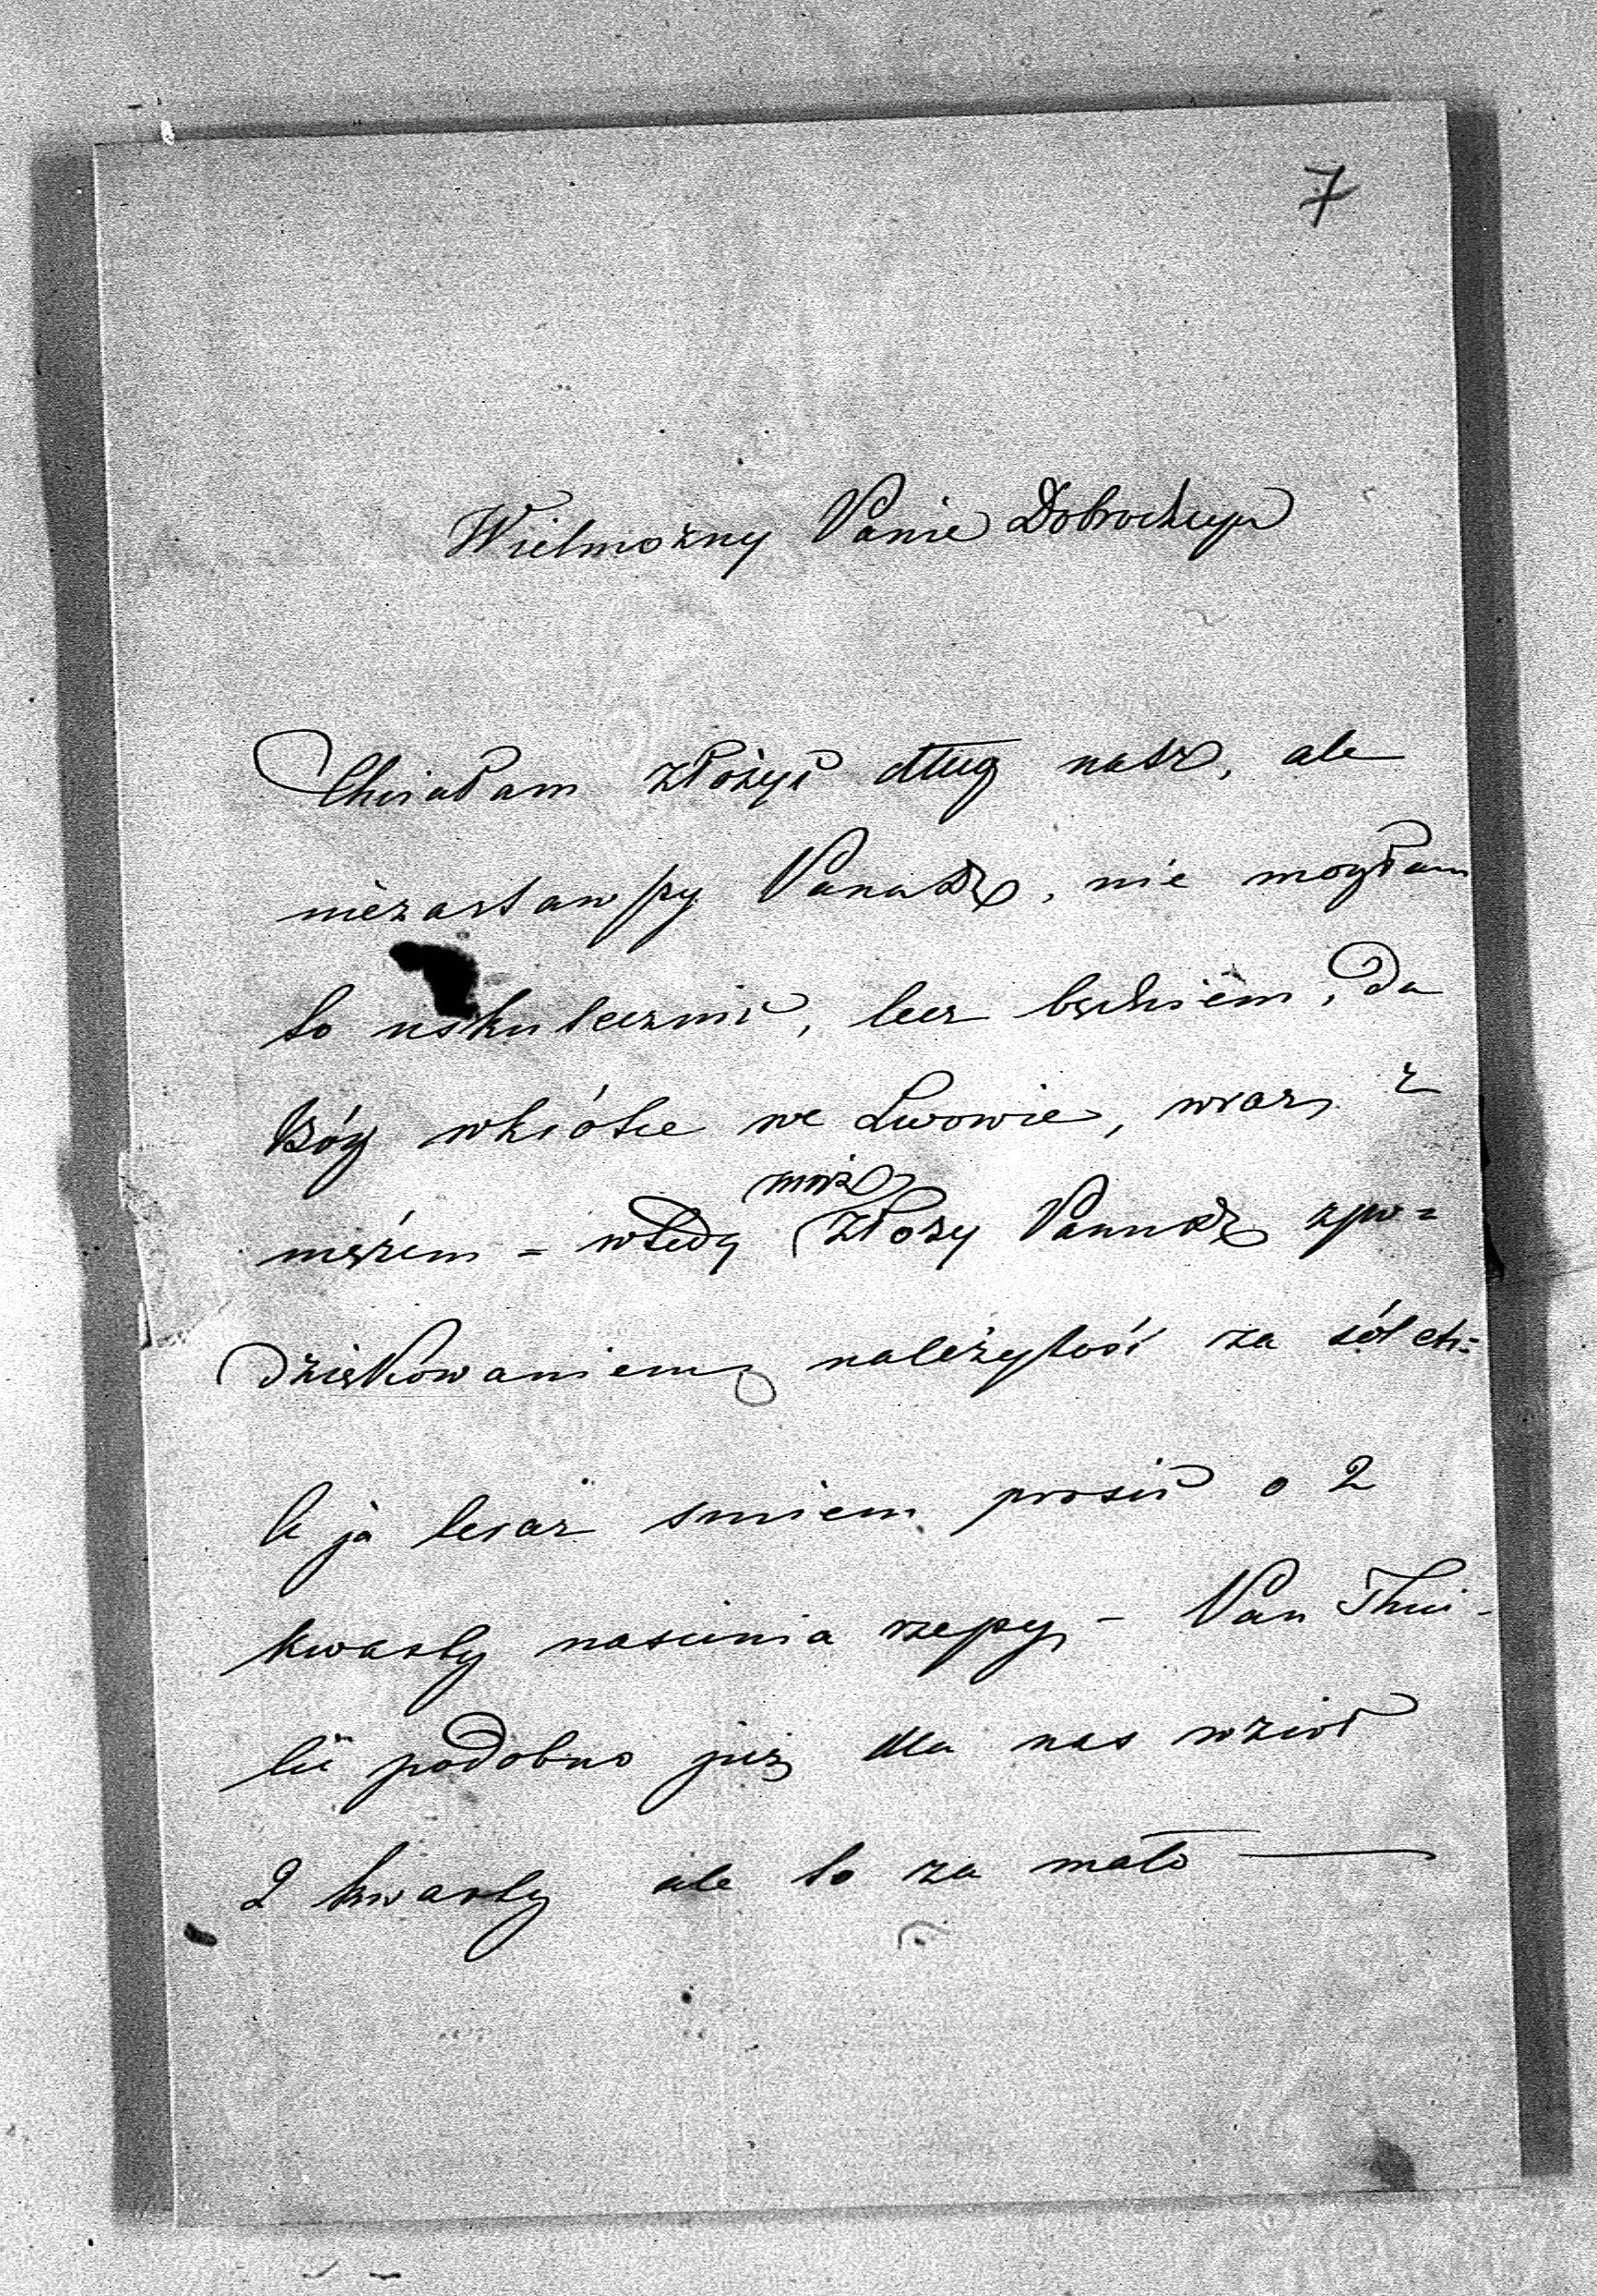 7
Wielmożny Panie Dobrodzieju
Chciałam złożyć dług nasz, ale
niezastawszy Pana Dr, nie mogłam
to uskutecznić, lecz będziem, da
Bóg wkrótce we Lwowie, wraz z
mężem = wtedy mąż złoży Panu Dr z po=
dziękowaniem należytość za sól etc:
A ja teraz smiem prosić o 2
kwarty nasienia rzepy, - Pan Thui-
lié podobno już dla nas wziół
2 kwarty ale to za mało —